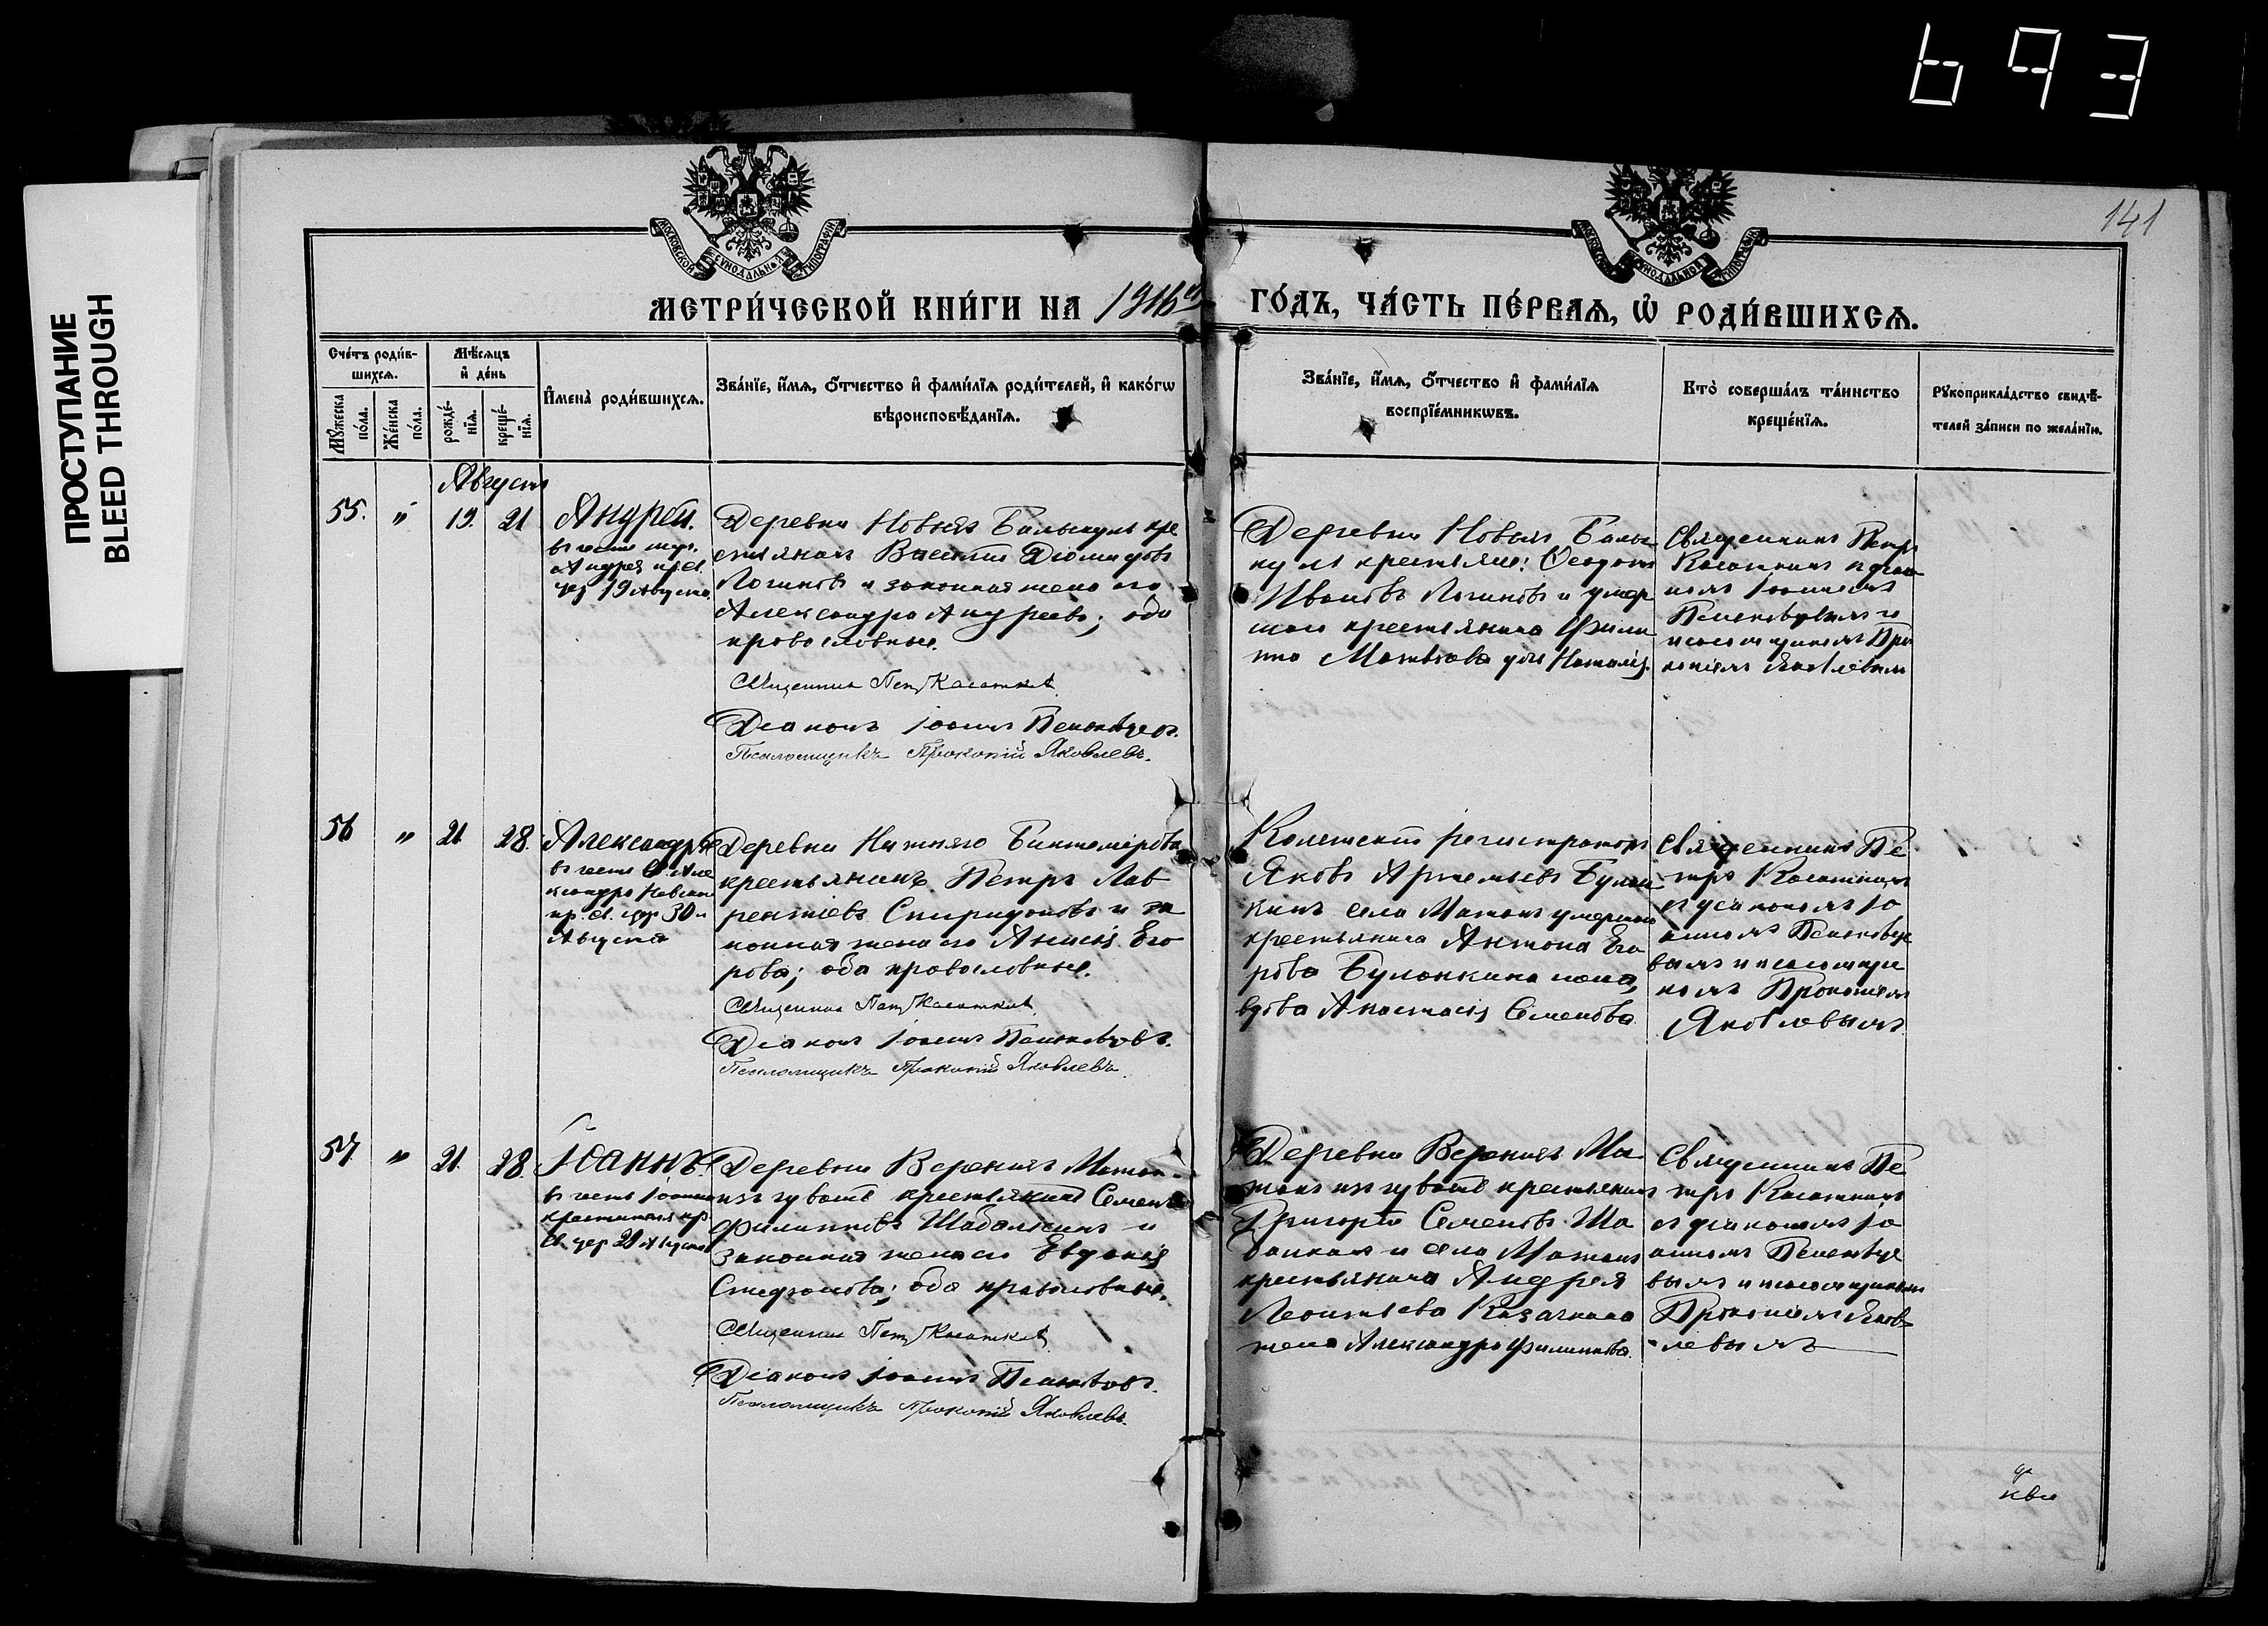 693
ПРОСТУПАНИЕ
BLEED THROUGH
141
МОСКОВСКОЙ СѴНОДАЛЬНОЙ ТИПОГРАФІИ
МЕТРИ́ЧЕСКОЙ КНИ́ГИ НА 1916й
ГО́ДЪ, ЧА́СТЬ ПЕ́РВАѦ, Ѡ҆ РОДИ́ВШИХСѦ.
Сче́тъ роди́в-
шихсѧ.
Мꙋ́жеска по́ла.
Же́нска по́ла.
Мѣ́сѧцъ
и҆ де́нь
рожде́-нїѧ.
креще́-нїѧ.
И҆мена̀ роди́вшихсѧ.
Зва́нїе, и҆́мѧ, ѻ҆́тчество и҆ фами́лїѧ роди́телей, и҆ како́гѡ
вѣроисповѣ́данїѧ.
Зва́нїе, и҆́мѧ, ѻ҆́тчество и҆ фами́лїѧ
воспрїе́мникѡвъ.
Кто̀ соверша́лъ та́инство
креще́нїѧ.
Рꙋкоприкла́дство свидѣ́-
телей за́писи по жела́нїю.
Августъ
55. " 19. 21 Андрей.
въ честь муч.
Андрея пр. св.
цер 19 Августа.
Деревни Новыхъ Балыкулъ кре
стьянинъ Василій Діомидовъ
Логиновъ и законная жена его
Александра Андреева; оба
православные.
Священникъ Петръ Касаткинъ
Діаконъ Іоаннъ
Псаломщикъ Прокопій Яковлевъ.
Деревни Новыхъ Балы
кулъ крестьяне: Ѳедотъ
Ивановъ Логиновъ и умер
шаго крестьянина Фили
ппа Матвѣева Наталія.
Священникъ Петръ
Касаткинъ съ діако
номъ Іоанномъ
и
псаломщикомъ Про
копіемъ Яковлевымъ
56 " 21 28. Александръ
въ честь Св. Але
ксандра Невскаго
пр. св. цер 30го
Августа
Деревни Нижняго Биктемірова
крестьянинъ Петръ Лав
рентіевъ Спиридоновъ и за
конная жена его Анисія Его
рова; оба православные.
Священникъ Петръ Касаткинъ
Діаконъ Іоаннъ
Псаломщикъ Прокопій Яковлевъ.
Колежскій регистраторъ
Яковъ Артемьевъ Булан
кинъ села Матакъ умершаго
крестьянина Антона Его
рова Буланкина жена,
вдова Анастасія Семенова
Священникъ Пе
тръ Касаткинъ
съ діакономъ Іо
анномъ
вымъ и псаломщи
комъ Прокопіемъ
Яковлевымъ
57. " 21. 28. Іоаннъ
въ честь Іоанна
крестителя пр.
св. цер 29 Августа
Деревни Верхнихъ Матак
крестьянинъ Семенъ
Филипповъ Шабалкинъ и
законная жена его Евдокія
Стефанова; оба православные.
Священникъ Петръ Касаткинъ
Діаконъ Іоаннъ
Псаломщикъ Прокопій Яковлевъ.
Деревни Верхнихъ Ма-
такъ крестьянинъ
Григорій Семеновъ Ша
балкинъ и села Матакъ
крестьянина Андрея
Леонтьева Казачкова
жена Александра Филиппова.
Священникъ Пе
тръ Касаткинъ
съ діакономъ Іо
анномъ
вымъ и псаломщикомъ
Прокопіемъ Яков-
левымъ